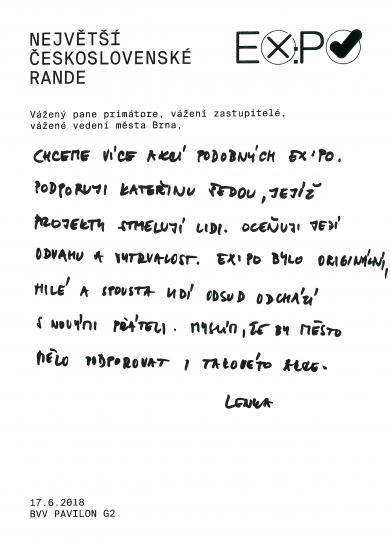 NEJVĚTŠÍ
ČESKOSLOVENSKÉ
RANDE
EX:PO
Vážený pane primátore, vážení zastupitelé,
vážené vedení města Brna,
CHCEME VÍCE AKCÍ PODOBNÝCH EX:PO.
PODPORUJI KATEŘINU ŠEDOU, JEJÍŽ
PROJEKTY STMELUJÍ LIDI. OCEŇUJI JEJÍ
ODVAHU A VYTRVALOST. EX:PO BYLO ORIGINÁLNÍ,
MILÉ A SPOUSTA LIDÍ ODSUD ODCHÁZÍ
S NOVÝMI PŘÁTELI. MYSLÍM, ŽE BY MĚSTO
MĚLO PODPOROVAT I TAKOVÉTO AKCE.
LENKA
17.6.2018
BVV PAVILON G2